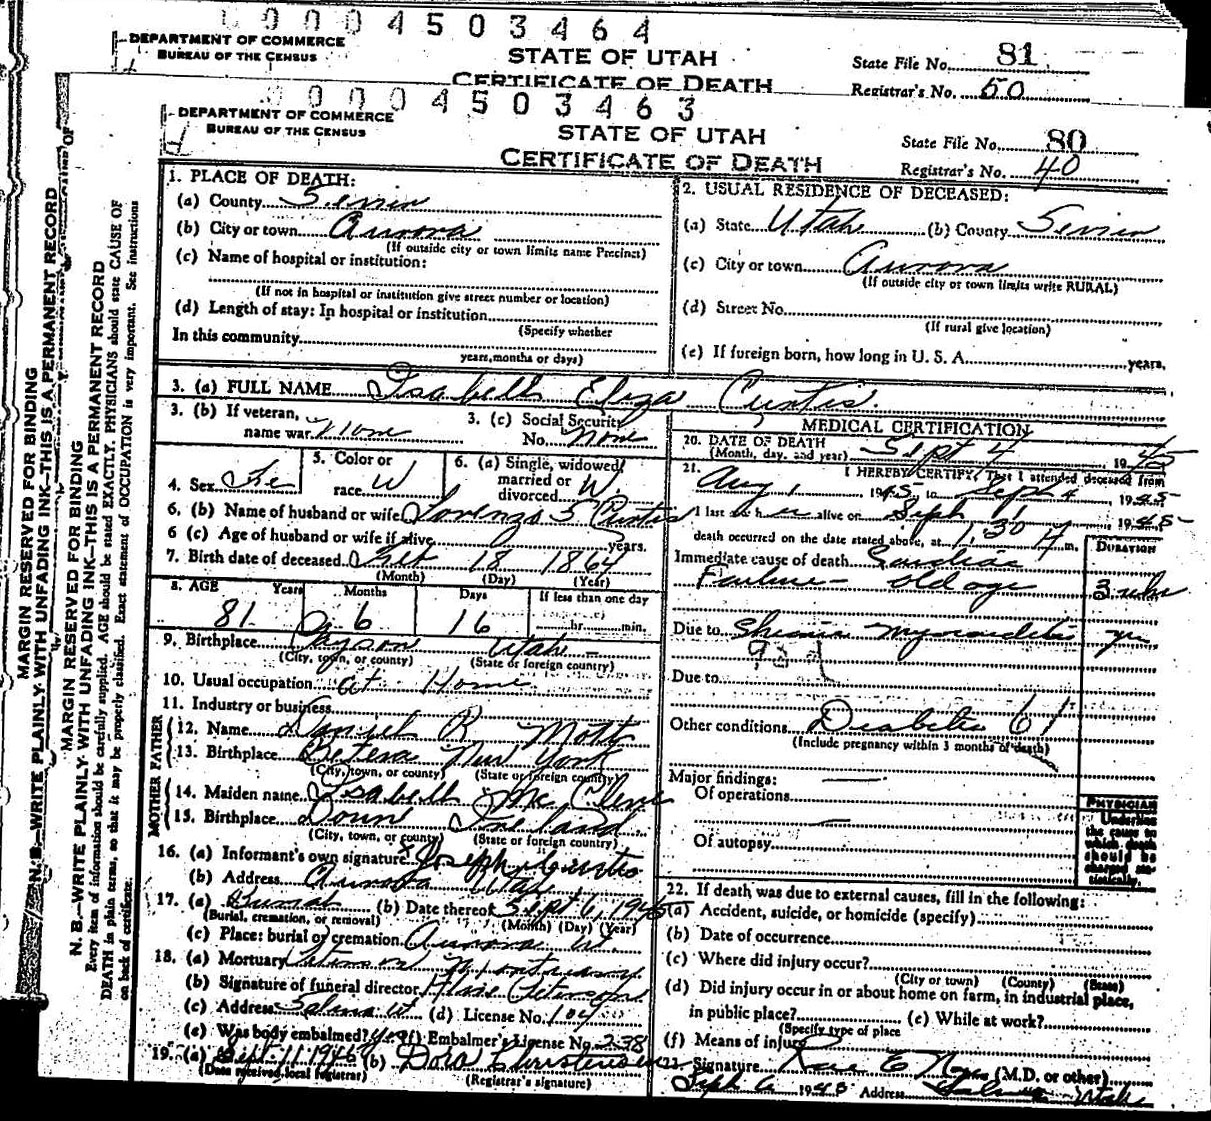 0 0 0 4 5 0 3 4 6 4
DEPARTMENT OF COMMERCE
BUREAU OF THE CENSUS
STATE OF UTAH
CERTIFICATE OF DEATH
State File No. 81
Registrar's No. 50
0 0 0 4 5 0 3 4 6 3
DEPARTMENT OF COMMERCE
BUREAU OF THE CENSUS
STATE OF UTAH
CERTIFICATE OF DEATH
State File No. 80
Registrar's No. 40
MARGIN RESERVED FOR BINDING
N. B.—WRITE PLAINLY WITH UNFADING INK—THIS IS A PERMANENT RECORD
MARGIN RESERVED FOR BINDING
N. B.—WRITE PLAINLY WITH UNFADING INK—THIS IS A PERMANENT RECORD
Every item of information should be carefully supplied. AGE should be stated EXACTLY. PHYSICIANS should state CAUSE OF
DEATH in plain terms, so that it may be properly classified. Exact statement of OCCUPATION is very important. See instructions
on back of certificate.
1. PLACE OF DEATH:
(a) County Sevier
(b) City or town Aurora
(If outside city or town limits name Precinct)
(c) Name of hospital or institution:
(If not in hospital or institution give street number or location)
(d) Length of stay: In hospital or institution
(Specify whether
In this community
years, months or days)
2. USUAL RESIDENCE OF DECEASED:
(a) State Utah (b) County Sevier
(c) City or town Aurora
(If outside city or town limits write RURAL)
(d) Street No.
(If rural give location)
(e) If foreign born, how long in U. S. A. years.
3. (a) FULL NAME Isabell Eliza Curtis
3. (b) If veteran,
name war None
3. (c) Social Security
No. None
4. Sex Fe
5. Color or
race W
6. (a) Single, widowed,
married or
divorced W
6. (b) Name of husband or wife Lorenzo S Curtis
6 (c) Age of husband or wife if alive years.
7. Birth date of deceased Feb 18 1864
(Month) (Day) (Year)
8. AGE Years Months Days If less than one day
81 6 16 hr. min.
9. Birthplace Payson Utah
(City, town, or county) (State or foreign country)
10. Usual occupation at Home
11. Industry or business
FATHER
12. Name Daniel R Mott
13. Birthplace New York
(City, town, or county) (State or foreign country)
MOTHER
14. Maiden name Isabell
15. Birthplace Ireland
(City, town, or county) (State or foreign country)
16. (a) Informant's own signature Joseph Curtis
(b) Address Aurora Utah
17. (a) Burial (b) Date thereof Sept 6, 1945
(Burial, cremation, or removal) (Month) (Day) (Year)
(c) Place: burial or cremation Aurora Ut.
18. (a) Mortuary Peterson Mortuary
(b) Signature of funeral director Peterson
(c) Address Salina Ut (d) License No. 104
(e) Was body embalmed? yes (f) Embalmer's License No. 238
19. (a) Sept 11 194 (b) Dora Christensen
(Date received local registrar) (Registrar's signature)
MEDICAL CERTIFICATION
20. DATE OF DEATH
(Month, day, and year) Sept 4 1945
21. I HEREBY CERTIFY, That I attended deceased from
Aug 1 1945 to Sept 4 1945
I last saw her alive on Sept 1 1945
death occurred on the date stated above, at 1:30 m.
DURATION
Immediate cause of death Cardiac
Failure - old age 3
Due to Myocarditis yr
Due to
Other conditions Diabetes 61
(Include pregnancy within 3 months of death)
Major findings:
Of operations
Of autopsy
PHYSICIAN
Underline
the cause to
which death
should be
charged sta-
tistically.
22. If death was due to external causes, fill in the following:
(a) Accident, suicide, or homicide (specify)
(b) Date of occurrence
(c) Where did injury occur?
(City or town) (County) (State)
(d) Did injury occur in or about home on farm, in industrial place,
in public place? (e) While at work?
(Specify type of place
(f) Means of injury
23. Signature Rae E Noyes (M.D. or other)
Sept 6 1945 Address Salina Utah